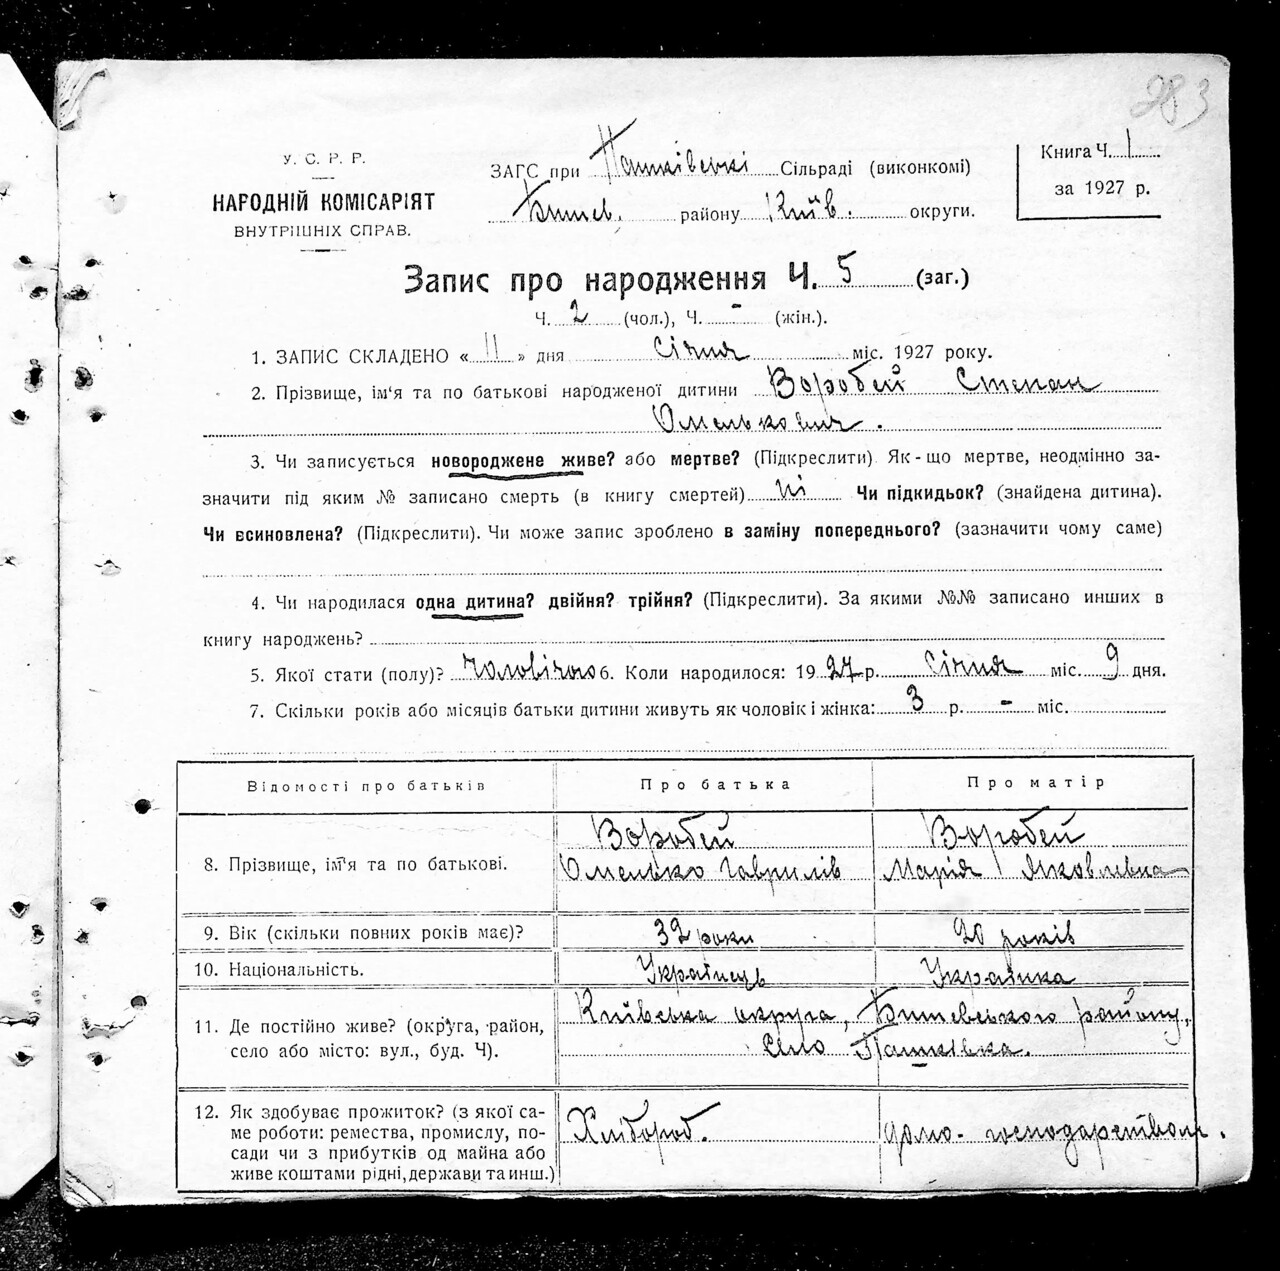 283
У. С. Р. Р.
НАРОДНІЙ КОМІСАРІЯТ
ВНУТРІШНІХ СПРАВ.
ЗАГС при Пашківські Сільраді (виконкомі)
Бишев. району Київ. округи.
Книга Ч. 1
за 1927 р.
Запис про народження Ч. 5 (заг.)
Ч. 2 (чол.), Ч. - (жін.).
1. ЗАПИС СКЛАДЕНО « 11 » дня Січня міс. 1927 року.
2. Прізвище, ім'я та по батькові народженої дитини Воробей Степан
Омелькович.
3. Чи записується новороджене живе? або мертве? (Підкреслити) Як-що мертве, неодмінно за-
значити під яким № записано смерть (в книгу смертей) ні Чи підкидьок? (знайдена дитина).
Чи всиновлена? (Підкреслити). Чи може запис зроблено в заміну попереднього? (зазначити чому саме)
4. Чи народилася одна дитина? двійня? трійня? (Підкреслити). За якими №№ записано инших в
книгу народжень?
5. Якої стати (полу)? Чоловічого 6. Коли народилося: 1927 р. Січня міс. 9 дня.
7. Скільки років або місяців батьки дитини живуть як чоловік і жінка: 3 р. - міс.
Відомості про батьків Про батька Про матір
8. Прізвище, ім'я та по батькові. Воробей Омелько Гаврилів Воробей Марія Яковлевна
9. Вік (скільки повних років має)? 32 роки 20 років
10. Національність. Українець Українка
11. Де постійно живе? (округа, район, Київська округа, Бишевського району,
село або місто: вул., буд. Ч). село Пашківка.
12. Як здобуває прожиток? (з якої са- Хлібороб. домо-господарством.
ме роботи: ремества, промислу, по-
сади чи з прибутків од майна або
живе коштами рідні, держави та инш.)